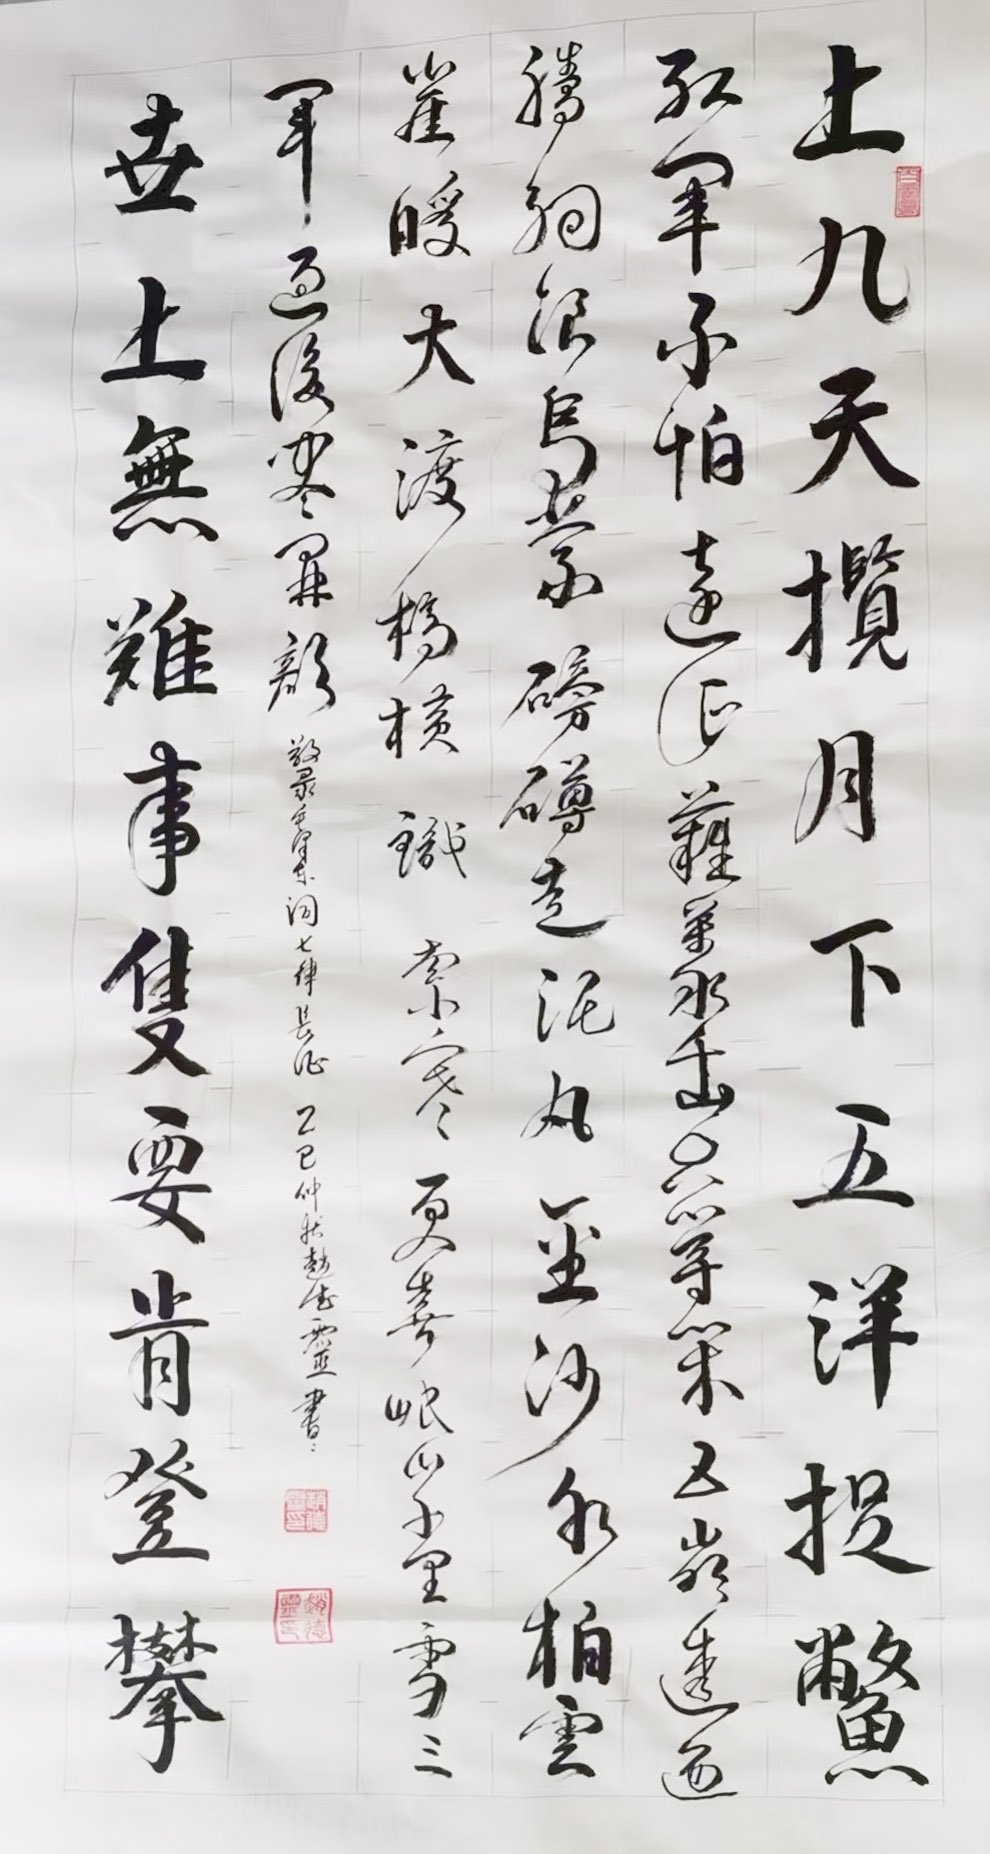 上九天攬月下五洋捉鱉
紅軍不怕遠征難萬水千山只等閑五嶺逶迤
騰細浪烏蒙磅礴走泥丸金沙水柏雲
崖暖大渡橋橫鐵索寒更喜岷山千里雪三
軍過後盡開顏
敬录毛澤東詞七律長征 乙巳仲秋趙德靈書
世上無難事隻要肯登攀